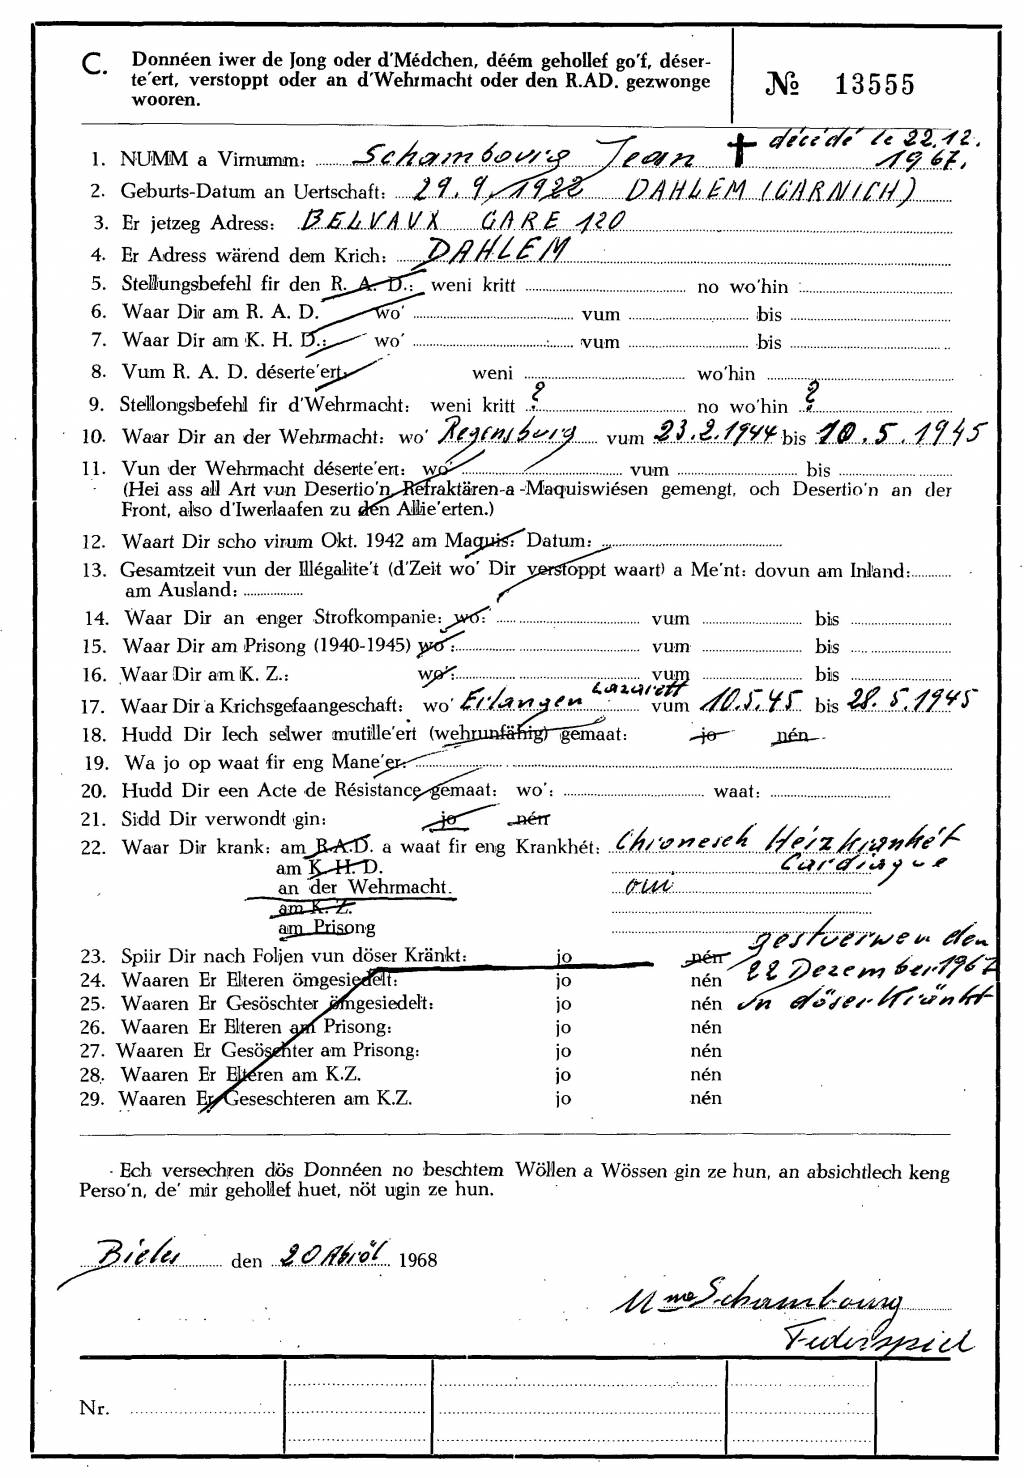 C. Donnéen iwer de Jong oder d'Médchen, déém gehollef go'f, déser-
te'ert, verstoppt oder an d'Wehrmacht oder den R.AD. gezwonge
wooren.
№ 13555
✝ décédé le 22.12.
1967.
1. NUMM a Virnumm: Schambourg Jean
2. Geburts-Datum an Uertschaft: 29.9.1922 DAHLEM (GARNICH)
3. Er jetzeg Adress: BELVAUX GARE 120
4. Er Adress wärend dem Krich: DAHLEM
5. Stellungsbefehl fir den R. A. D.: weni kritt no wo'hin :
6. Waar Dir am R. A. D. wo' vum bis
7. Waar Dir am K. H. D.: wo' vum bis
8. Vum R. A. D. déserte'ert: weni wo'hin
9. Stellongsbefehl fir d'Wehrmacht: weni kritt ? no wo'hin ?
10. Waar Dir an der Wehrmacht: wo' Regensburg vum 23.2.1944 bis 10.5.1945
11. Vun der Wehrmacht déserte'ert: wo' vum bis
(Hei ass all Art vun Desertio'n, Refraktären-a -Maquiswiésen gemengt, och Desertio'n an der
Front, also d'Iwerlaafen zu den Allie'erten.)
12. Waart Dir scho virum Okt. 1942 am Maquis: Datum:
13. Gesamtzeit vun der Illégalite't (d'Zeit wo' Dir verstoppt waart) a Me'nt: dovun am Inland:
am Ausland:
14. Waar Dir an enger Strofkompanie: wo: vum bis
15. Waar Dir am Prisong (1940-1945) wo': vum bis
16. Waar Dir am K. Z.: wo': vum bis
17. Waar Dir a Krichsgefaangeschaft: wo' Erlangen Lazarett vum 10.5.45 bis 28.5.1945
18. Hudd Dir Iech selwer mutille'ert (wehrunfähig) gemaat: jo nén
19. Wa jo op waat fir eng Mane'er:
20. Hudd Dir een Acte de Résistance gemaat: wo': waat:
21. Sidd Dir verwondt gin: jo nén
22. Waar Dir krank: am R.A.D. a waat fir eng Krankhét: Chronesch Herzkrankét
am K. H. D. Cardiaque
an der Wehrmacht. oui
am K. Z.
am Prisong
gestuerwen den
23. Spiir Dir nach Foljen vun döser Kränkt: jo nén 22 Dezember 1967
24. Waaren Er Elteren ömgesiedelt: jo nén
25. Waaren Er Gesöschter ömgesiedelt: jo nén un döser Kränkt
26. Waaren Er Elteren am Prisong: jo nén
27. Waaren Er Gesöschter am Prisong: jo nén
28. Waaren Er Elteren am K.Z. jo nén
29. Waaren Er Geseschteren am K.Z. jo nén
Ech versechren dös Donnéen no beschtem Wöllen a Wössen gin ze hun, an absichtlech keng
Perso'n, de' mir gehollef huet, nöt ugin ze hun.
Bieles den 20 Abröl 1968
Mme Schambourg
Federspiel
Nr.